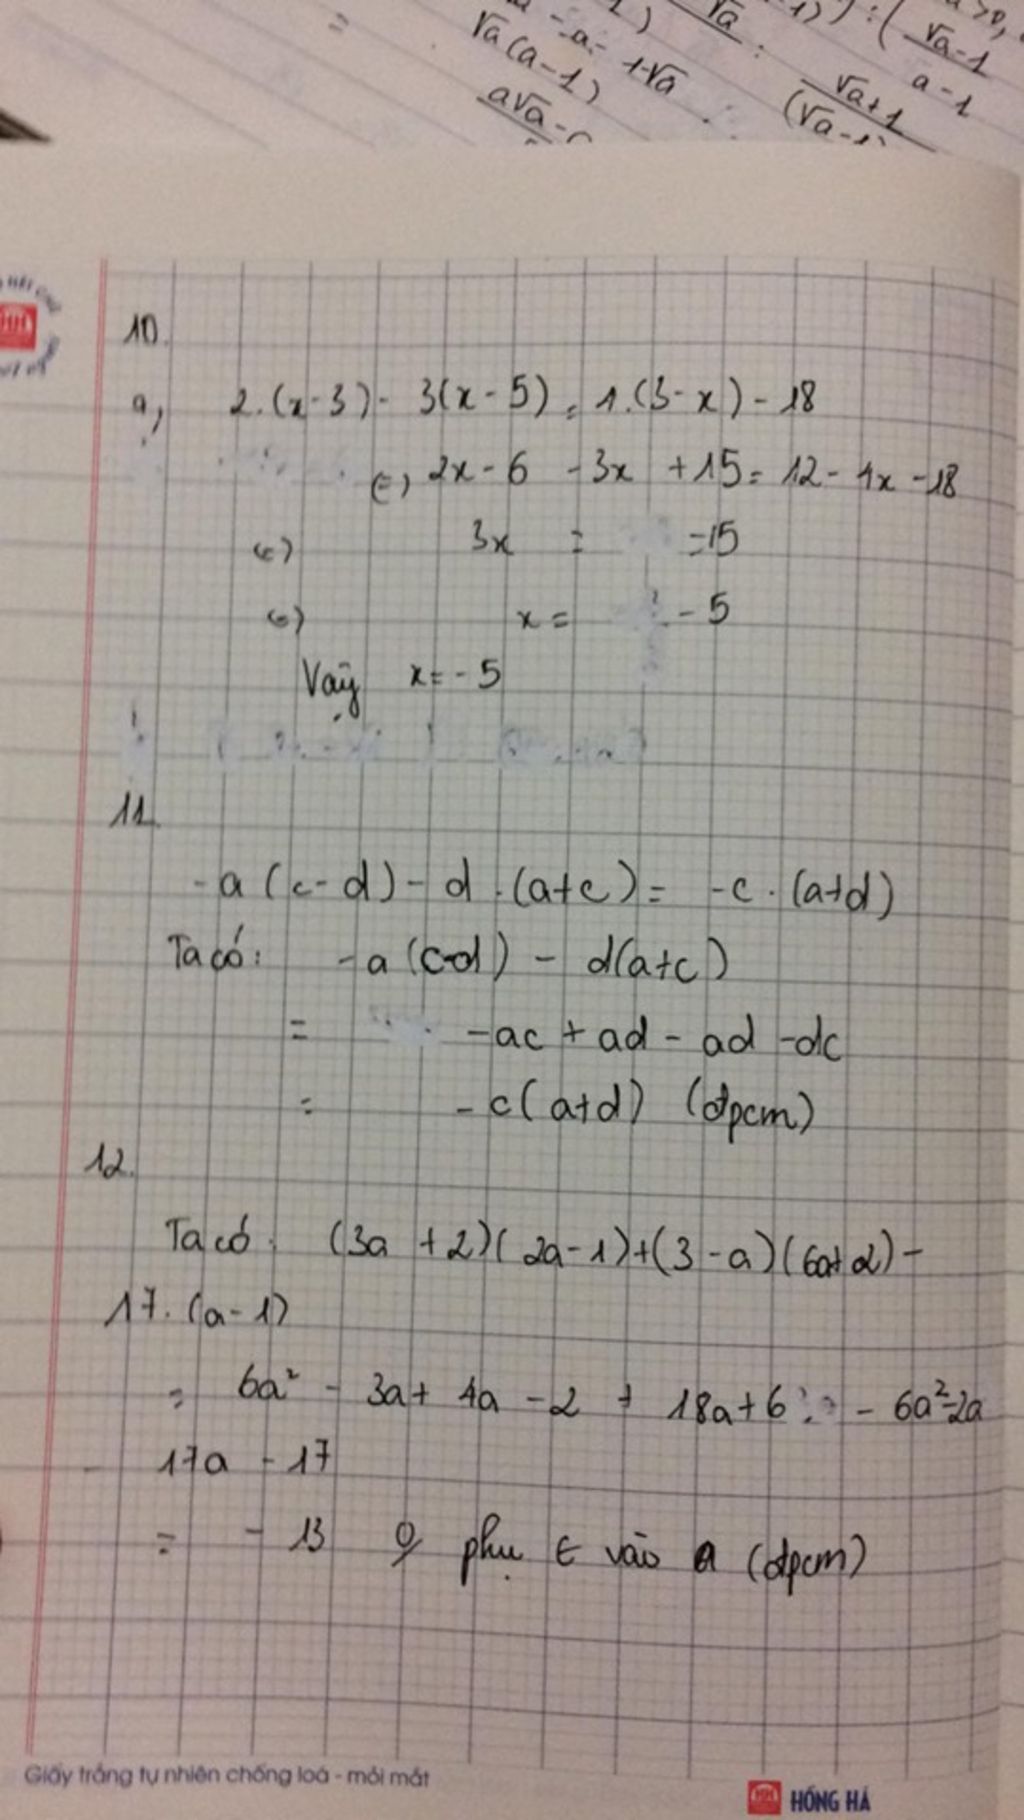 √a(a-1)
1-√a
a√a-
√a
√a-1
a-1
√a+1
(√a-1)
10.
a, 2.(x-3)-3(x-5)=4.(3-x)-18
(=) 2x-6-3x+15=12-4x-18
(=) 3x = -15
(=) x = -5
Vậy x=-5
11.
-a(c-d)-d.(a+c)=-c.(a+d)
Ta có: -a(c-d)-d(a+c)
= -ac+ad-ad-dc
= -c(a+d) (đpcm)
12.
Ta có: (3a+2)(2a-1)+(3-a)(6a+2)-
17.(a-1)
= 6a²-3a+4a-2+18a+6-6a²-2a
- 17a-17
= -13 phụ ∈ vào a (đpcm)
Giấy trắng tự nhiên chống loá - mỏi mắt
HỒNG HÀ